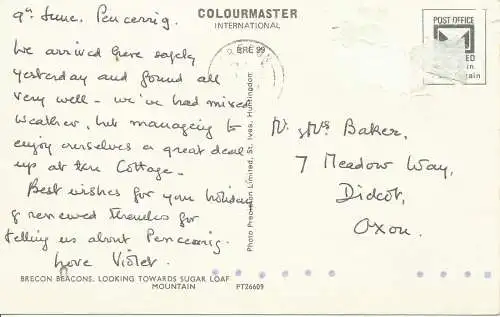 9th June. Pencerrig.
We arrived here safely
yesterday and found all
very well - we've had mixed
weather, but managing to
enjoy ourselves a great deal
up at the Cottage -
Best wishes for your holiday
& renewed thanks for
telling us about Pencerrig.
Love Violet.
BRECON BEACONS. LOOKING TOWARDS SUGAR LOAF
MOUNTAIN PT26609
COLOURMASTER
INTERNATIONAL
Photo Precision Limited, St. Ives, Huntingdon
POST OFFICE
Mr. & Mrs Baker,
7 Meadow Way,
Didcot,
Oxon.